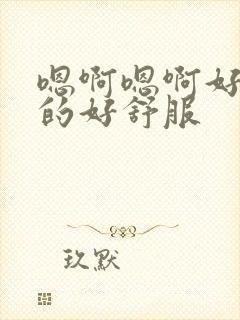 嗯啊嗯啊好
的好舒服
玖默